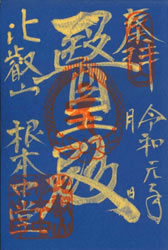 奉拝
令和元年
月
日
醫王殿
比叡山
根本中堂